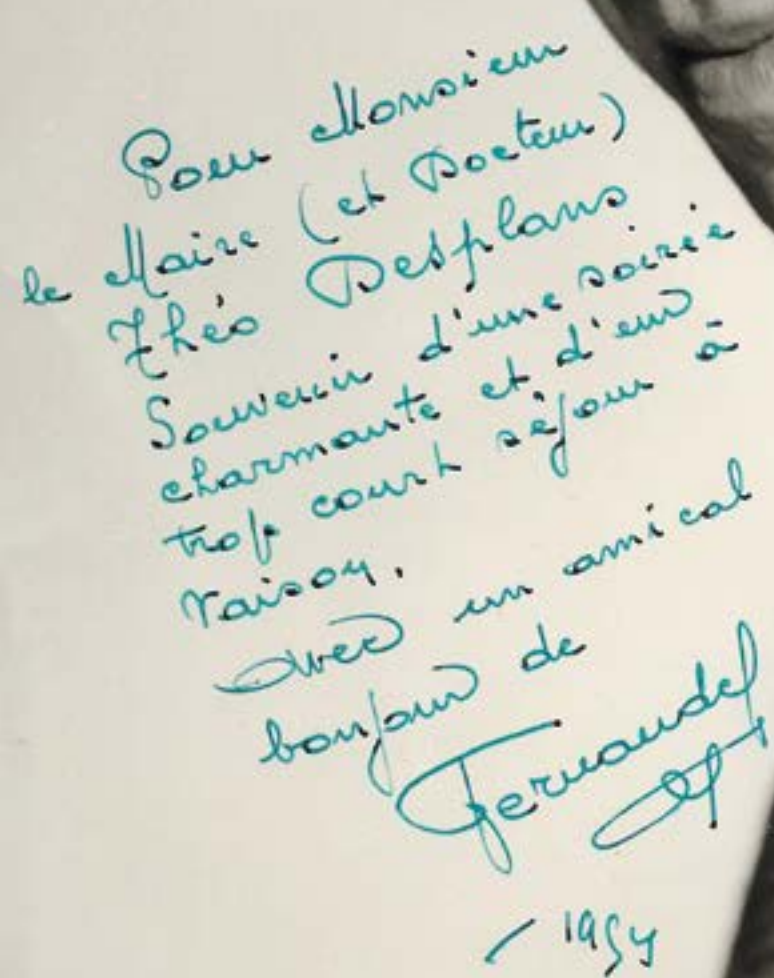 Pour Monsieur
le Maire (et Docteur)
Théo Desplans
Souvenir d'une soirée
charmante et d'un
trop court séjour à
Vaison.
Avec un amical
bonjour de
Fernandel
1954